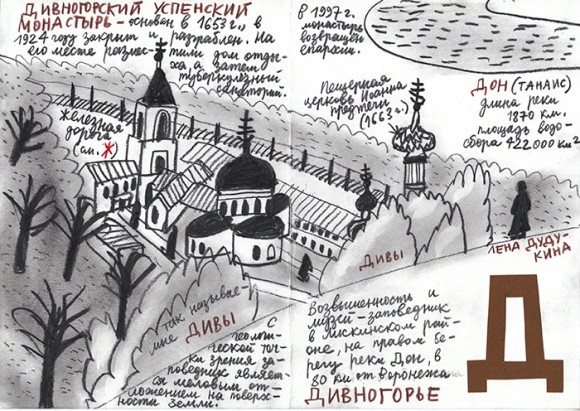 ДИВНОГОРСКИЙ УСПЕНСКИЙ
МОНАСТЫРЬ - основан в 1653 г., в
1924 году закрыт и разграблен. На
его месте размес-
тили дом отды-
ха, а затем
туберкулёзный
санаторий.
В 1997 г.
монастырь
возвращен
епархии.
Пещерная
церковь Иоанна
предтечи
(1663 г.)
ДОН (ТАНАИС)
длина реки
1870 км.
площадь водо-
сбора 422000 км²
железная
дорога
(см. Ж)
ДИВЫ
ЛЕНА ДУДУ-
КИНА
так называе-
мые ДИВЫ
С
геологи-
ческой точ-
ки зрения за-
поведник являет-
ся меловым от-
ложением на поверх-
ности земли.
Возвышенность и
музей-заповедник
в Лискинском рай-
оне, на правом бе-
регу реки Дон, в
80 км от Воронежа
ДИВНОГОРЬЕ
Д